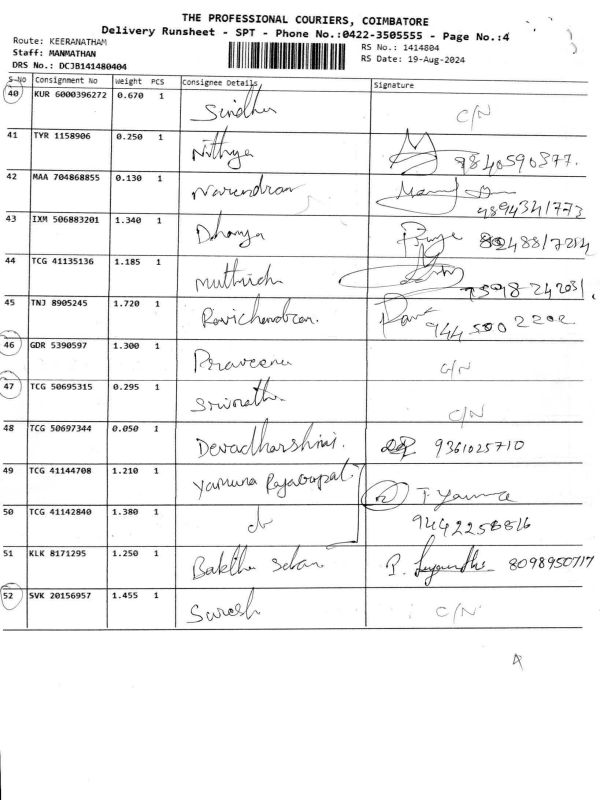 THE PROFESSIONAL COURIERS, COIMBATORE
Delivery Runsheet - SPT - Phone No.:0422-3505555 - Page No.:4
Route: KEERANATHAM
RS No.: 1414804
Staff: MANMATHAN
RS Date: 19-Aug-2024
DRS No.: DCJB141480404
S No Consignment No Weight PCS Consignee Details Signature
40 KUR 6000396272 0.670 1 Sindhu C/N
41 TYR 1158906 0.250 1 Nithya 9840590377.
42 MAA 704868855 0.130 1 Narendran
9894341773
43 IXM 506883201 1.340 1 Dhanya
44 TCG 41135136 1.185 1 muthiah
45 TNJ 8905245 1.720 1 Ravichandran.
46 GDR 5390597 1.300 1 Praveena C/N
47 TCG 50695315 0.295 1 C/N
48 TCG 50697344 0.050 1 Devadharshini. 9361025710
49 TCG 41144708 1.210 1 Yamuna Rajagopal
50 TCG 41142840 1.380 1 9442258816
51 KLK 8171295 1.250 1 8098950717
52 SVK 20156957 1.455 1 Suresh C/N